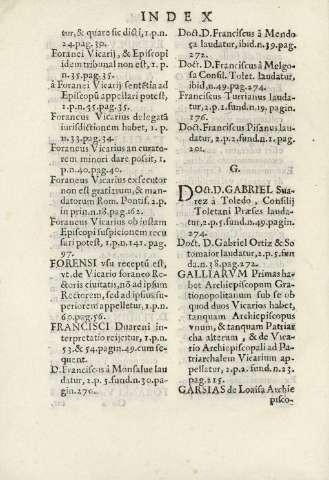 INDEX
tur, & quare sic dicti, 1.p.n.
24.pag.30.
Foranei Vicarij, & Episcopi
idem tribunal non est, 1.p.
n.35.pag.35.
à Foranei Vicarij sentẽtia ad
Episcopũ appellari potest,
1.p.n.35.pag.35.
Foraneus Vicarius delegatã
iurisdictionem habet, 1.p.
n.33.pag.34.
Foraneus Vicarius an curato-
rem minori dare possit, 1.p.
n.40.pag.40.
Foraneus Vicarius exsecutor
non est gratiarum, & man-
datorum Rom. Pontif. 2.p.
in prin.n.18.pag.162.
Foraneus Vicarius ob iustam
Episcopi suspicionem recu
sari potest, 1.p.n.141.pag.
97.
FORENSI vsu receptũ est,
vt. de Vicario foraneo Re-
ctoris ciuitatis, nõ ad ipsum
Rectorem, sed ad ipsius su-
periorem appelletur, 1.p.n.
60.pag.56.
FRANCISCI Duareni in-
terpretatio reijcitur, 1.p.n.
53.& 54.pagin.49.cum se-
quent.
D. Franciscus à Monsalue lau
datur, 2.p.5.fund.n.30.pa-
gin.270.
Doct. D. Franciscus à Mendo
ça laudatur, ibid.n.39.pag.
272.
Doct. D. Franciscus à Melgo-
sa Consil. Tolet. laudatur,
ibid.n.49.pag.274.
Franciscus Turrianus lauda-
tur, 2.p.2.fund.n.19.pagin.
176.
Doct. Franciscus Pisanus lau-
datur, 2.p.4.fund.n.1.pag.
201.
G.
Doct. D. GABRIEL Sua-
rez à Toledo, Consilij
Toletani Præses lauda-
tur, 2.p.5.fund.n.49.pagin.
274.
Doct. D. Gabriel Ortiz & So
tomaior laudatur, 2.p.5.fun
da.n.38.pag.272.
GALLIARVM Primas ha-
bet Archiepiscopum Gra-
tionopolitanum sub se ob
quod duos Vicarios habet,
tanquam Archiepiscopus
vnum, & tanquam Patriar
cha alterum, & de Vica-
rio Archiepiscopali ad Pa-
triarchalem Vicarium ap-
pellatur, 2.p.2.fund.n.23.
pag.215.
GARSIAS de Loaisa Archie
pisco-